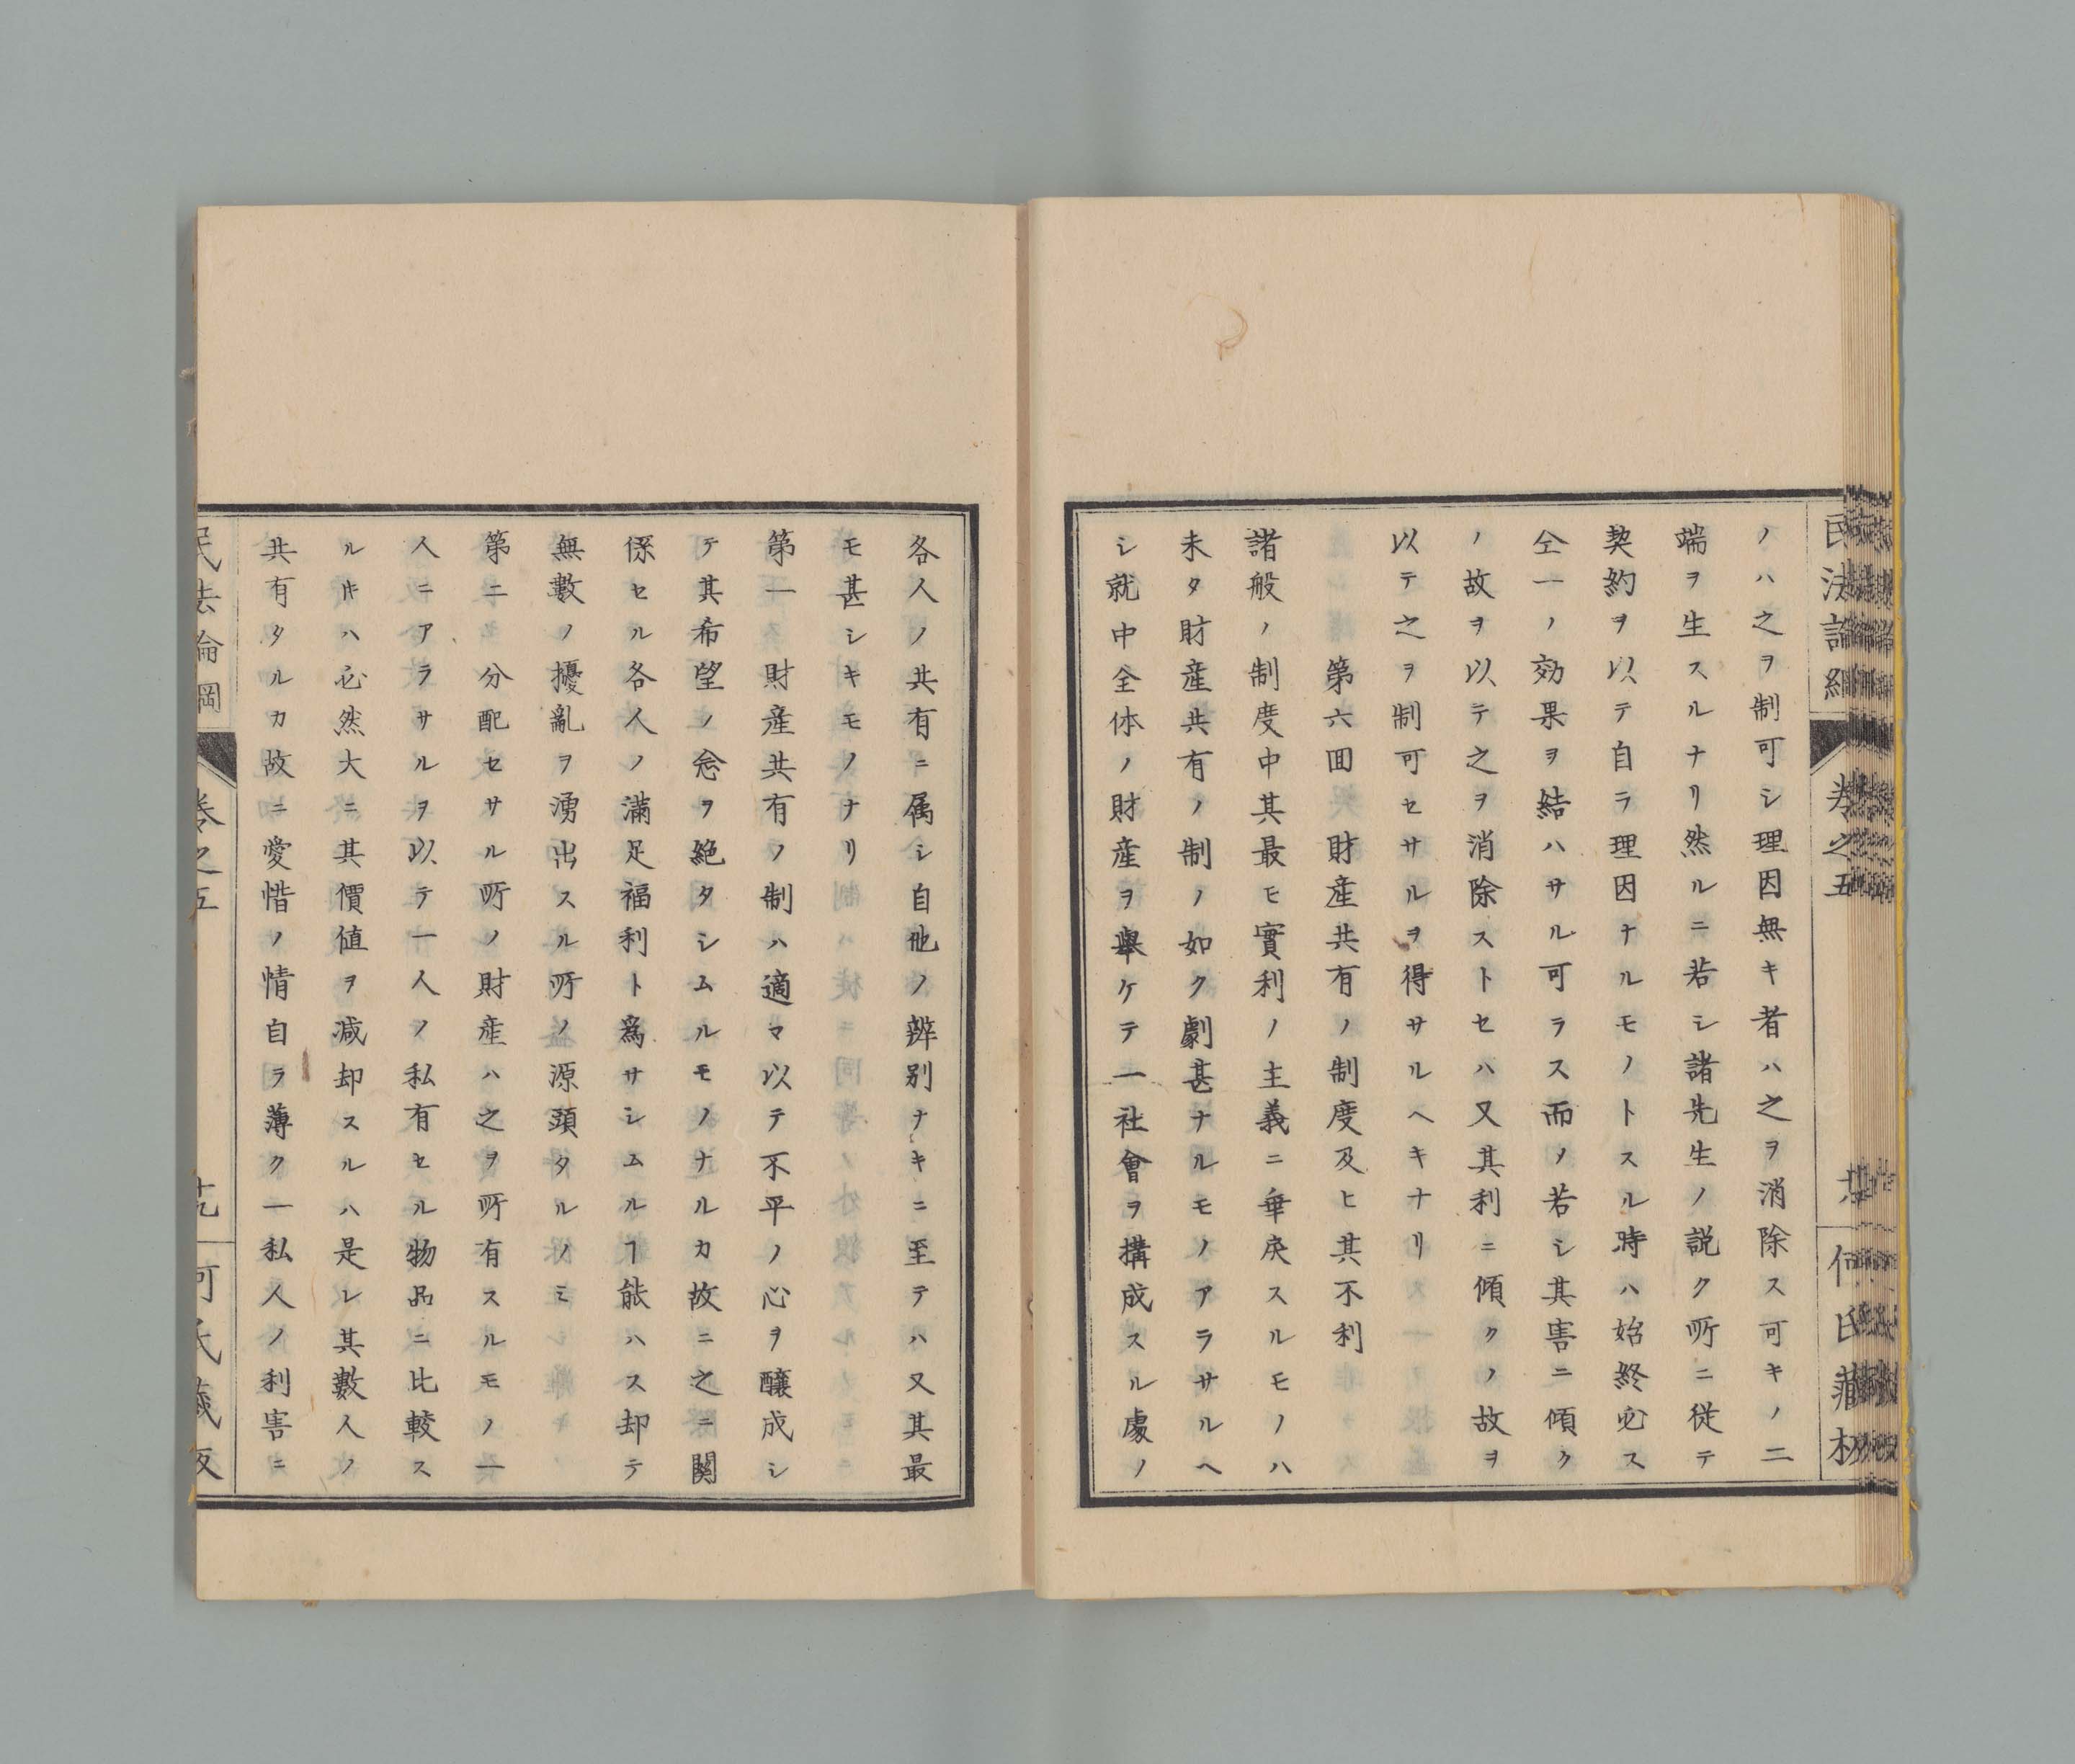 ノハ之ヲ制可シ理因無キ者ハ之ヲ消除ス可キノ二
端ヲ生スルナリ然ルニ若シ諸先生ノ説ク所ニ從テ
契約ヲ以テ自ラ理因ナルモノトスル時ハ始終必ス
仝一ノ効果ヲ結ハサル可ラス而ノ若シ其害ニ傾ク
ノ故ヲ以テ之ヲ消除ストセハ又其利ニ傾クノ故ヲ
以テ之ヲ制可セサルヲ得サルヘキナリ
第六囬 財產共有ノ制度及ヒ其不利
諸般ノ制度中其最モ實利ノ主義ニ乖戾スルモノハ
未タ財產共有ノ制ノ如ク劇甚ナルモノアラサルヘ
シ就中全体ノ財產ヲ擧ケテ一社會ヲ搆成スル處ノ
各人ノ共有ニ属シ自他ノ辨別ナキニ至テハ又其最
モ甚シキモノナリ
第一 財產共有ノ制ハ適マ以テ不平ノ心ヲ釀成シ
テ其希望ノ念ヲ絶タシムルモノナルカ故ニ之ニ関
係セル各人ノ滿足福利ト爲サシムルヿ能ハス却テ
無數ノ擾亂ヲ湧出スル所ノ源頭タルノミ
第二 分配セサル所ノ財產ハ之ヲ所有スルモノ一
人ニアラサルヲ以テ一人ノ私有セル物品ニ比較ス
ルキハ必然大ニ其價値ヲ減却スルハ是レ其數人ノ
共有タルカ故ニ愛惜ノ情自ラ薄ク一私人ノ利害ニ
民法論綱 卷之五 十九 何氏藏板